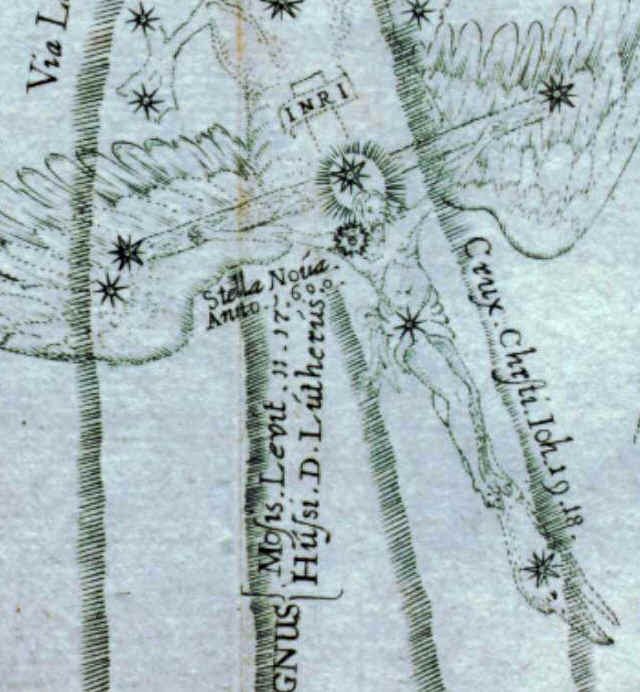 Via L
INRI
Stella Nova.
Anno. 1600.
Crux. Chrsti. Ioh. 19. 18.
Mosis. Levit. 11. 17.
Hússi. D. Lútherús
GNUS